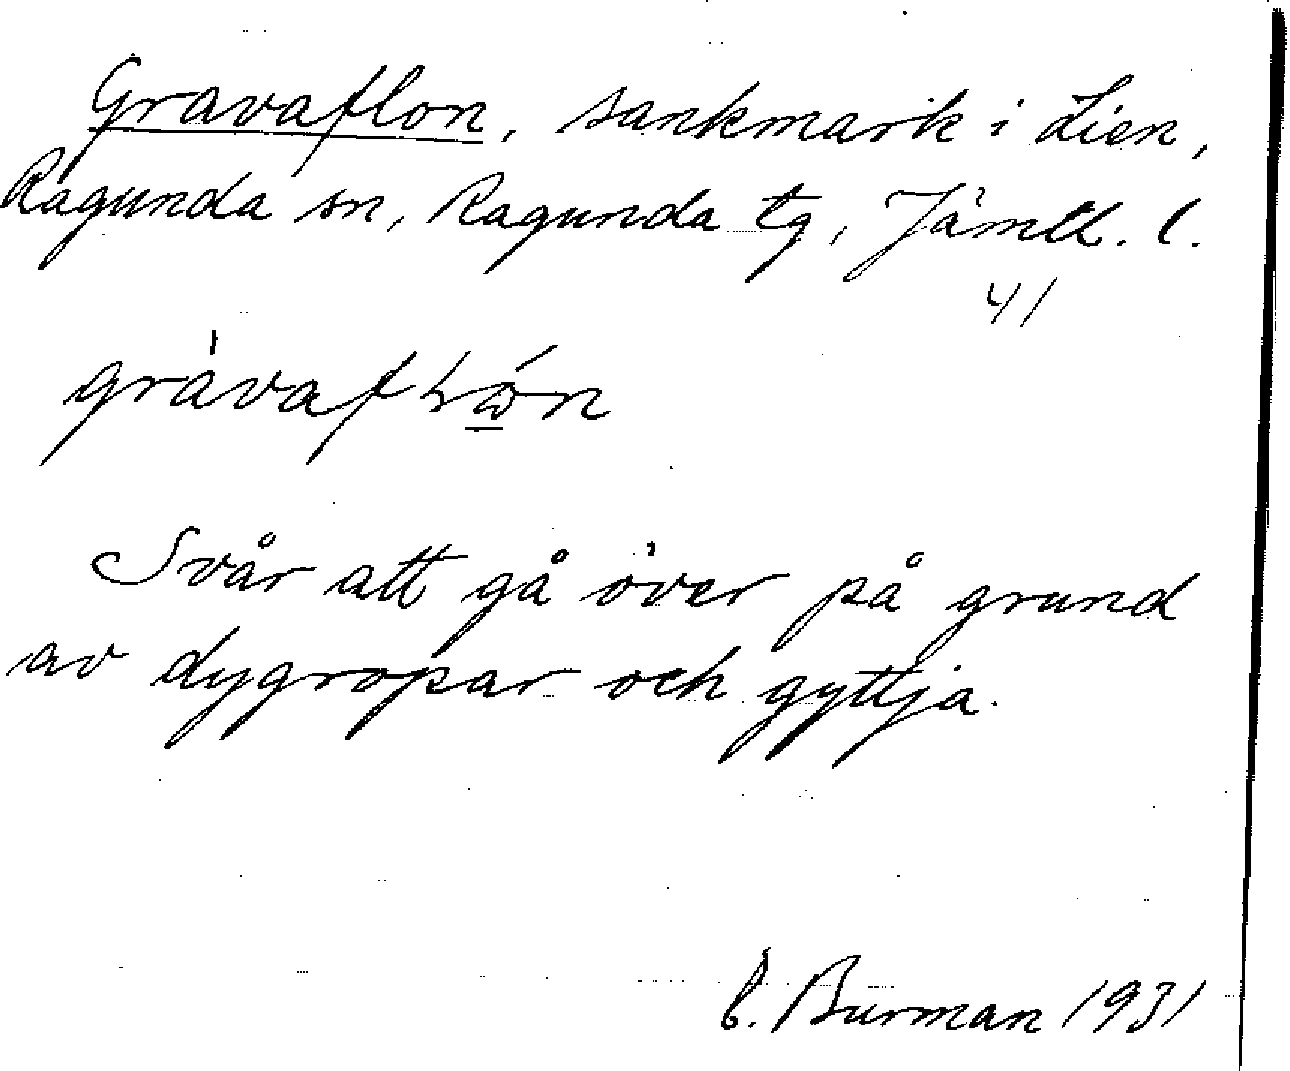 Gravaflon, sankmark i Lien,
Ragunda sn, Ragunda tg, Jämtl. l.
41
Svår att gå över på grund
av dygropar och gyttja.
E. Burman 1931